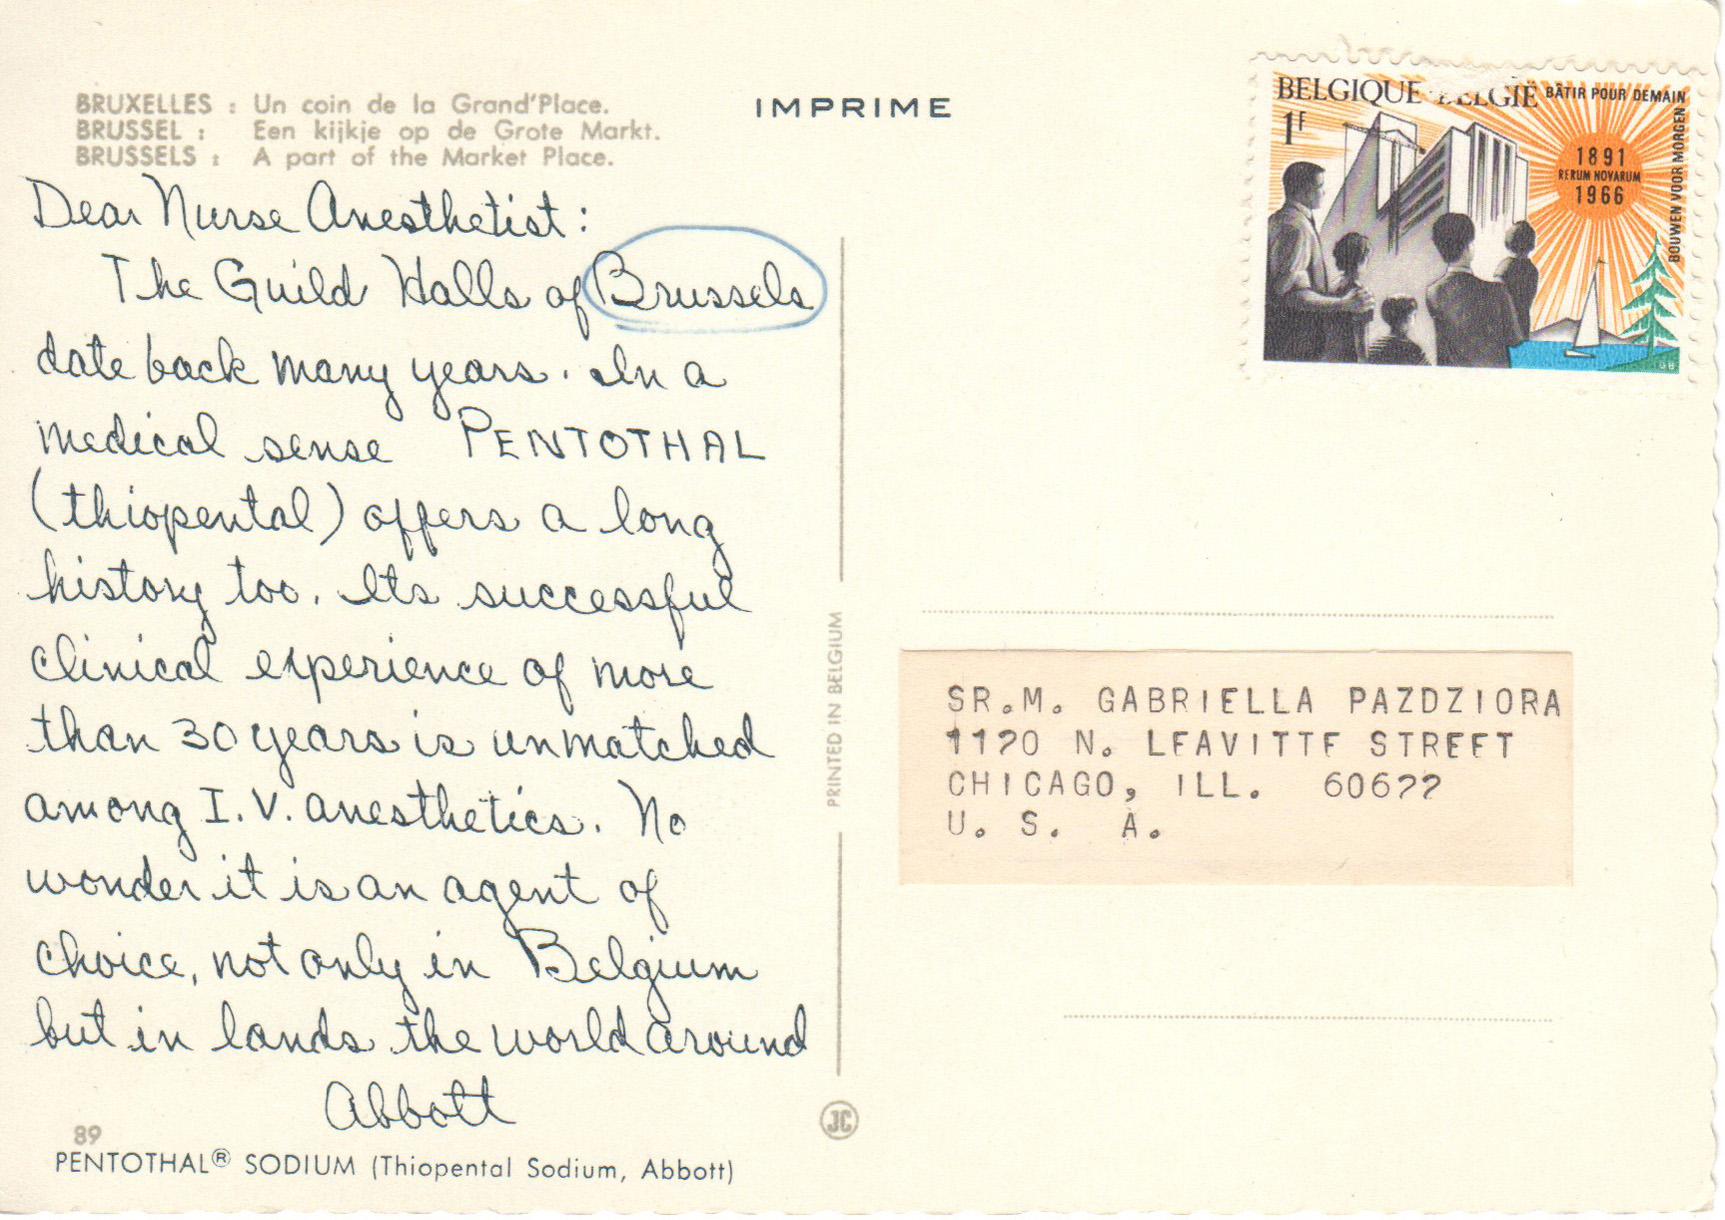 BRUXELLES : Un coin de la Grand'Place.
BRUSSEL : Een kijkje op de Grote Markt.
BRUSSELS : A part of the Market Place.
IMPRIME
BELGIQUE - BELGIË BÂTIR POUR DEMAIN
1F
BOUWEN VOOR MORGEN
1891
RERUM NOVARUM
1966
Dear Nurse Anesthetist:
The Guild Halls of Brussels
date back many years. In a
medical sense PENTOTHAL
(thiopental) offers a long
history too. Its successful
clinical experience of more
than 30 years is unmatched
among I.V. anesthetics. No
wonder it is an agent of
choice, not only in Belgium
but in lands the world around
Abbott
89
PENTOTHAL® SODIUM (Thiopental Sodium, Abbott)
PRINTED IN BELGIUM
JC
SR.M. GABRIELLA PAZDZIORA
1120 N. LEAVITTE STREET
CHICAGO, ILL. 60622
U. S. A.